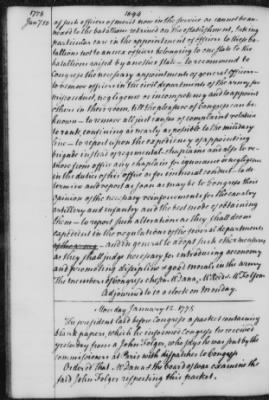 1778
Jany 10
of such officers of merit now in the service as cannot be an-
nexed to the batallions retained on the establishment, taking
particular care in the appointment of officers to these ba-
tallions not to annex officers belonging to one state to the
batallions raised by another state — to recommend to
Congress the necessary appointments of general officers —
to remove officers in the civil departments of the army for
misconduct, negligence or incompetency and to appoint
others in their room, till the pleasure of Congress can be
known — to remove all just cause of complaint relative
to rank, confining as nearly as possible to the military
line — to report upon the expediency of appointing
brigade instead of regimental chaplains and also to re-
move from office any chaplain for ignorance or negligence
in the duties of his office or for immoral conduct — to de-
termine and report as soon as may be to Congress their
opinion of the necessary reinforcements for the cavalry
artillery and infantry and the best mode of obtaining
them — to report such alterations as they shall deem
expedient in the regulations of the several departments
— and in general to adopt such other measures
as they shall judge necessary for introducing economy
and promoting discipline & good morals in the army
The members of Congress chosen Mr Dana, Mr Reed, Mr Folsom
Adjourned to 10 o clock on Monday.
Monday January 12. 1778
The president laid before Congress a packet containing
blank papers, which he informed Congress he received
yesterday from a John Folger, who says he was sent by the
commissioners at Paris with dispatches to Congress
Ordered that Mr Dana & the board of war examine the
said John Folger respecting this packet.